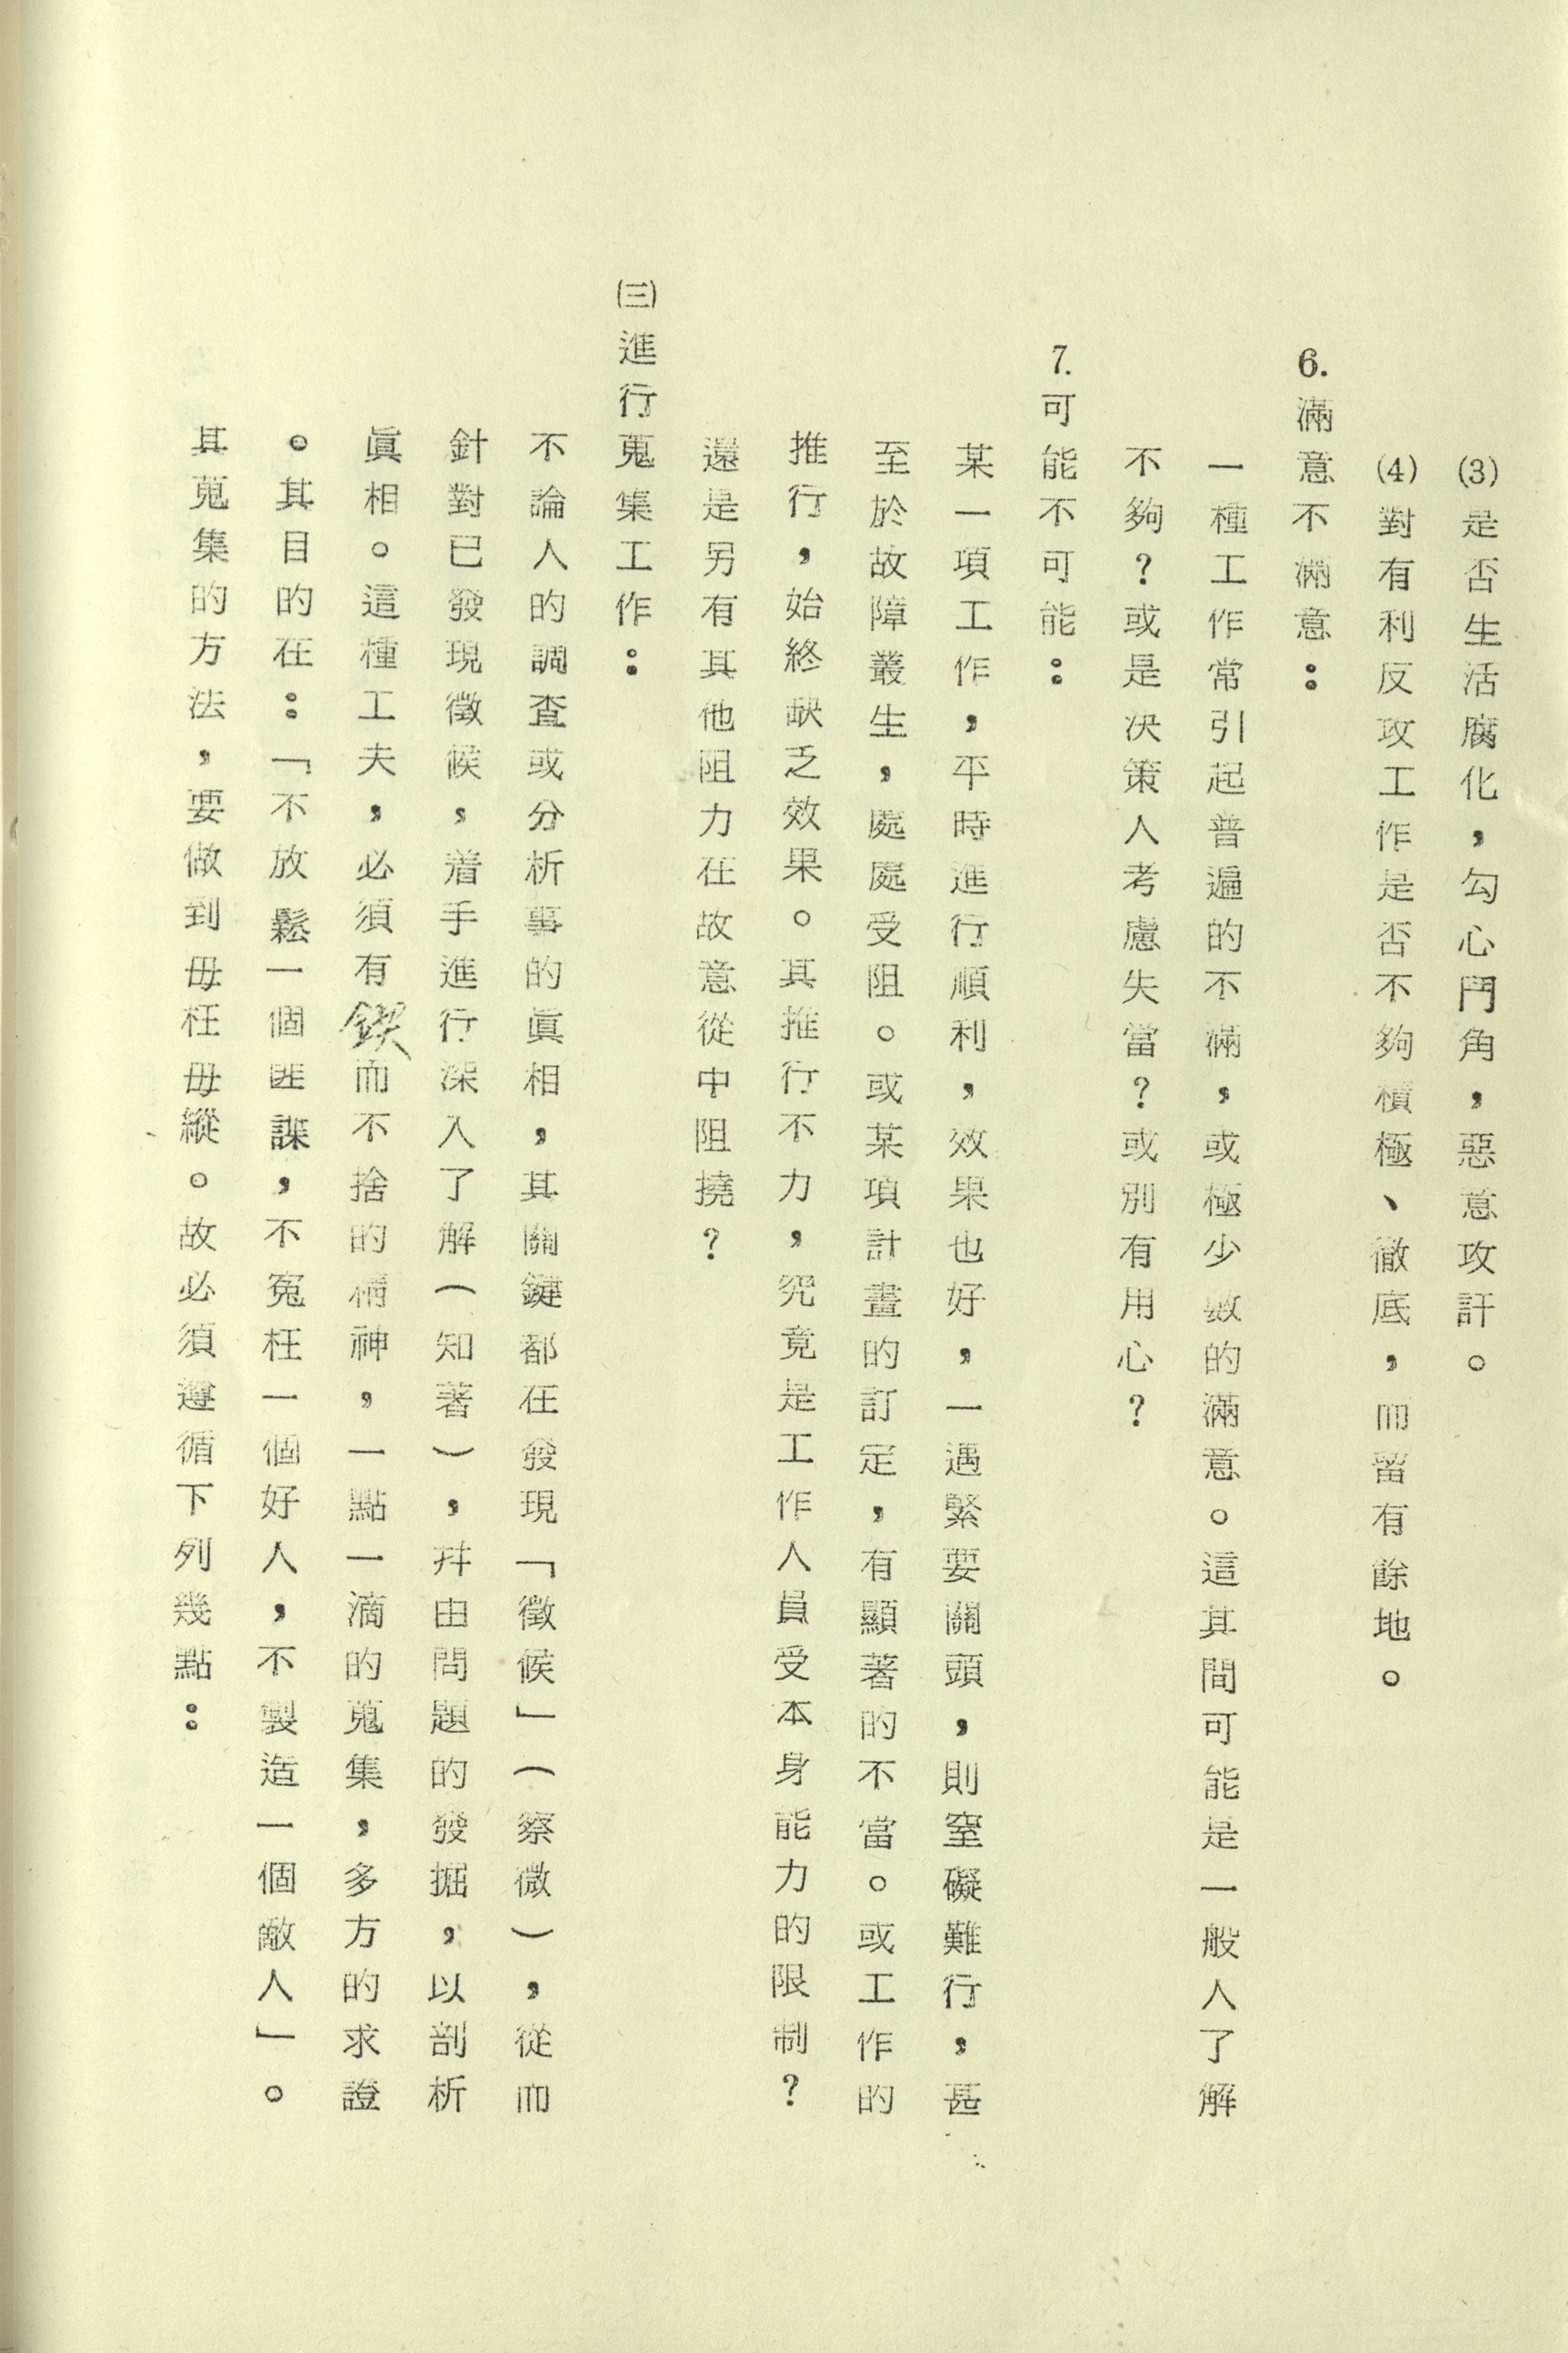 (3)是否生活腐化，勾心鬥角，惡意攻訐。
(4)對有利反攻工作是否不夠積極、徹底，而留有餘地。
6.滿意不滿意：
一種工作常引起普遍的不滿，或極少數的滿意。這其間可能是一般人了解
不夠？或是決策人考慮失當？或別有用心？
7.可能不可能：
某一項工作，平時進行順利，效果也好，一遇緊要關頭，則窒礙難行，甚
至於故障叢生，處處受阻。或某項計畫的訂定，有顯著的不當。或工作的
推行，始終缺乏效果。其推行不力，究竟是工作人員受本身能力的限制？
還是另有其他阻力在故意從中阻撓？
㈢進行蒐集工作：
不論人的調查或分析事的眞相，其關鍵都在發現「徵候」（察微），從而
針對已發現徵候，着手進行深入了解（知著），幷由問題的發掘，以剖析
眞相。這種工夫，必須有鍥而不捨的精神，一點一滴的蒐集，多方的求證
。其目的在：「不放鬆一個匪諜，不冤枉一個好人，不製造一個敵人」。
其蒐集的方法，要做到毋枉毋縱。故必須遵循下列幾點：